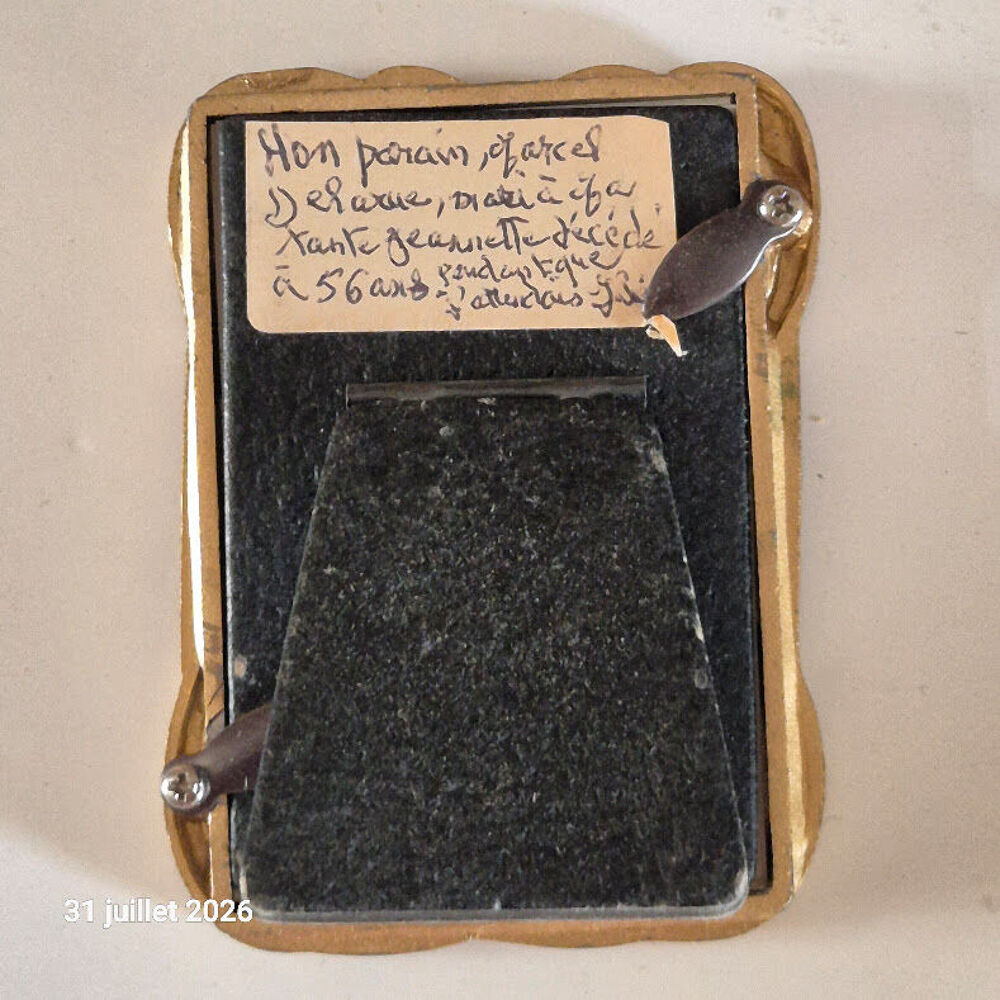 Mon parain, Marcel
Delarue, marié à Ma
tante Jeannette décédé
à 56 ans pendant que
j'attendais
31 juillet 2026